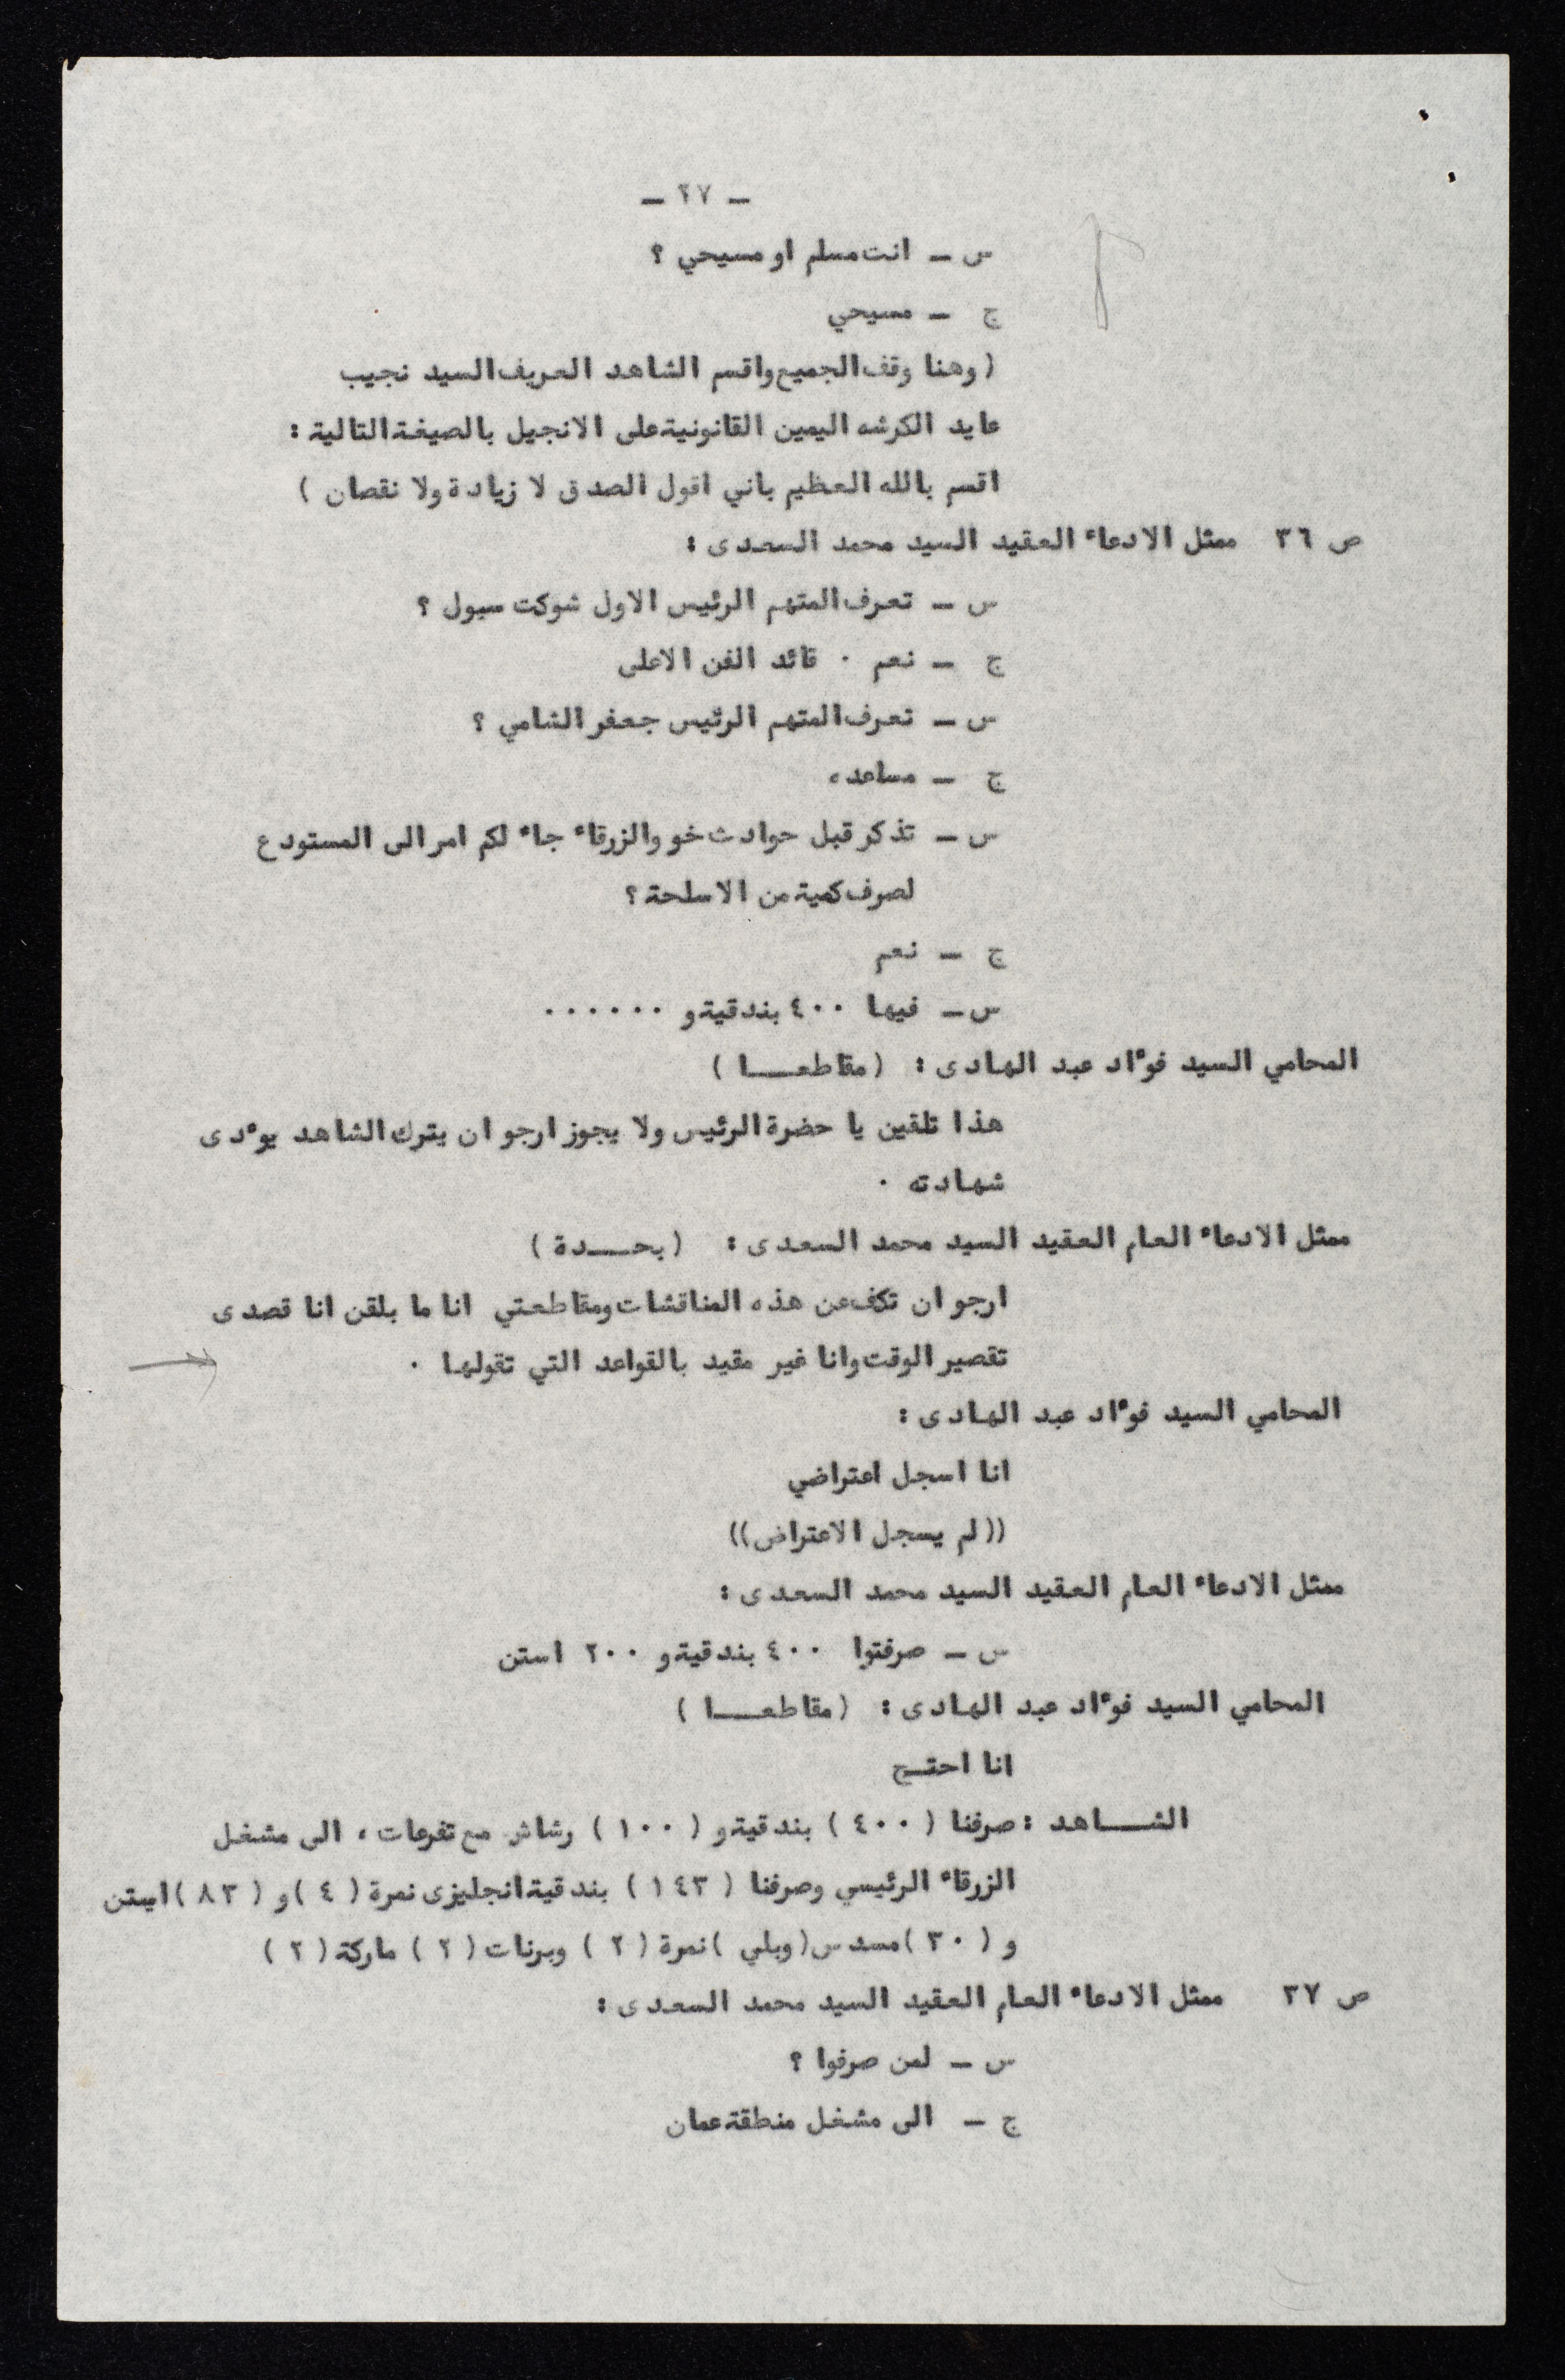 ـ ٢٧ ـ
س ـ انت مسلم او مسيحي ؟
ج ـ مسيحي
( وهنا وقف الجميع واقسم الشاهد العريف السيد نجيب
عايد الكرشه اليمين القانونية على الانجيل بالصيغة التالية :
اقسم بالله العظيم باني اقول الصدق لا زيادة ولا نقصان )
ص ٣٦ ممثل الادعاء العقيد السيد محمد السعدى :
س ـ تعرف المتهم الرئيس الاول شوكت سبول ؟
ج ـ نعم . قائد الفن الاعلى
س ـ تعرف المتهم الرئيس جعفر الشامي ؟
ج ـ مساعده
س ـ تذكر قبل حوادث خو والزرقاء جاء لكم امر الى المستودع
لصرف كمية من الاسلحة ؟
ج ـ نعم
س ـ فيها ٤٠٠ بندقية و ......
المحامي السيد فوءاد عبد الهادى : ( مقاطعـــا )
هذا تلقين يا حضرة الرئيس ولا يجوز ارجو ان يترك الشاهد يوءدى
شهادته .
ممثل الادعاء العام العقيد السيد محمد السعدى : ( بحـــدة )
ارجو ان تكف عن هذه المناقشات ومقاطعتي انا ما بلقن انا قصدى
تقصير الوقت وانا غير مقيد بالقواعد التي تقولها .
المحامي السيد فوءاد عبد الهادى :
انا اسجل اعتراضي
(( لم يسجل الاعتراض ))
ممثل الادعاء العام العقيد السيد محمد السعدى :
س ـ صرفتوا ٤٠٠ بندقية و ٢٠٠ استن
المحامي السيد فوءاد عبد الهادى : ( مقاطعـــا )
انا احتـج
الشـــاهد : صرفنا ( ٤٠٠ ) بندقية و ( ١٠٠ ) رشاش مع تفرعات ، الى مشغل
الزرقاء الرئيسي وصرفنا ( ١٤٣ ) بندقية انجليزى نمرة ( ٤ ) و ( ٨٣ ) استن
و ( ٣٠ ) مسدس ( وبلي ) نمرة ( ٢ ) وبرنات ( ٢ ) ماركة ( ٢ )
ص ٣٧ ممثل الادعاء العام العقيد السيد محمد السعدى :
س ـ لمن صرفوا ؟
ج ـ الى مشغل منطقة عمان